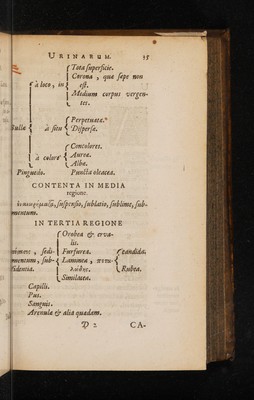 URINARUM. 15
Tota superficie.
Corona, quæ sæpe non
à loco, in est.
Medium corpus vergen-
tes.
Perpetuata.
Bulla à situ Dispersæ.
Concolores.
à colore Aureæ.
Albæ.
Pinguedo. Puncta oleacea.
CONTENTA IN MEDIA
regione.
suspensio, sublatio, sublime, sub-
mentum.
IN TERTIA REGIONE
Orobea & erva-
lis.
sedi- Furfurea. Candida.
mentum, sub- Laminea,
sidentia. Rubea.
Similacea.
Capilli.
Pus.
Sanguis.
Arenula & alia quædam.
D 2 CA-